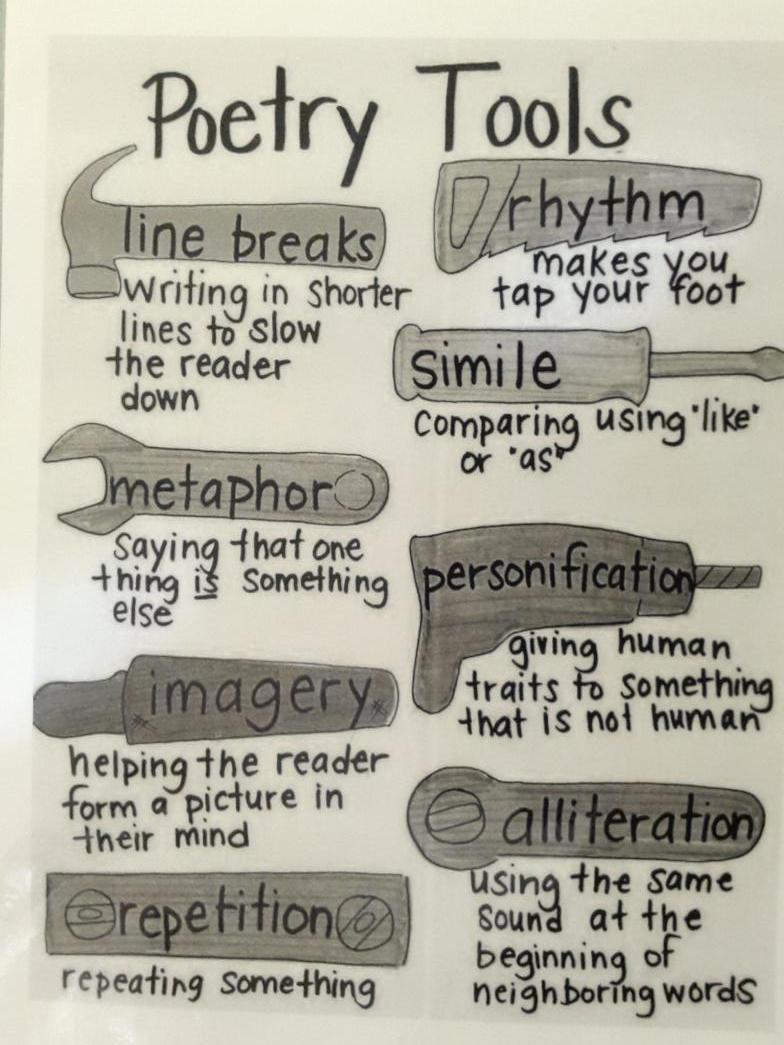 Poetry Tools
line breaks
writing in shorter
lines to slow
the reader
down
rhythm
makes you
tap your foot
simile
comparing using "like"
or "as"
metaphor
saying that one
thing is something
else
personification
giving human
traits to something
that is not human
imagery
helping the reader
form a picture in
their mind
alliteration
using the same
sound at the
beginning of
neighboring words
repetition
repeating something